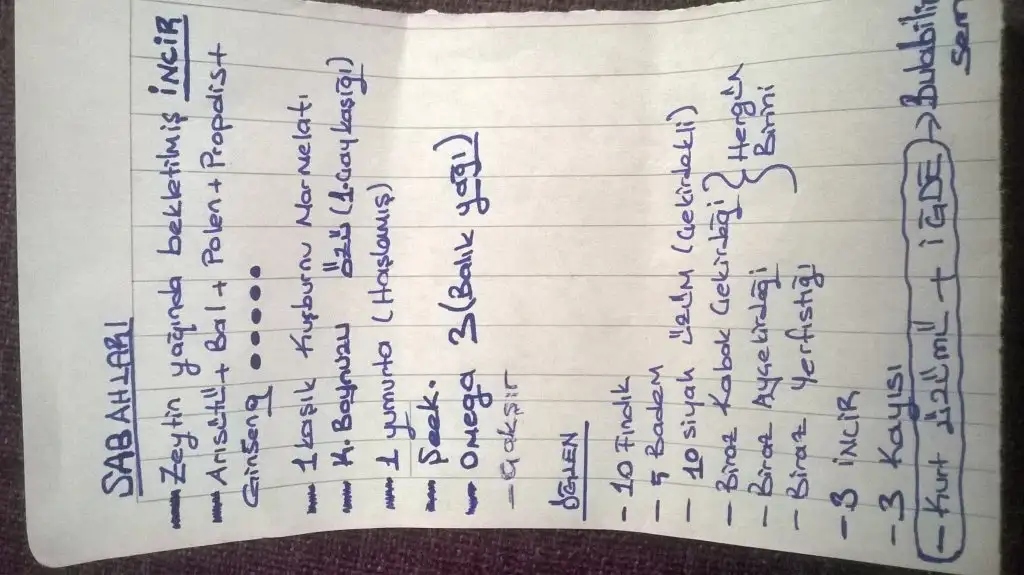 SABAHLARI
- Zeytin yağında bekletilmiş İNCİR
- Arısütü + Bal + Polen + Propolis +
Ginseng
- 1 kaşık Kuşburnu Marmelatı
- K. Boynuzu özü (1. çay kaşığı)
- 1 yumurta (Haşlanmış)
- Omega 3 (Balık yağı)
- Çakşır
ÖĞLEN
- 10 Fındık
- 5 Badem
- 10 siyah üzüm (çekirdekli)
- Biraz Kabak Çekirdeği } Hergün
- Biraz Ayçekirdeği } Birini
- Biraz Yerfıstığı
- 3 İNCİR
- 3 Kayısı
- Kurt üzümü + İĞDE → Bulabilir
sem